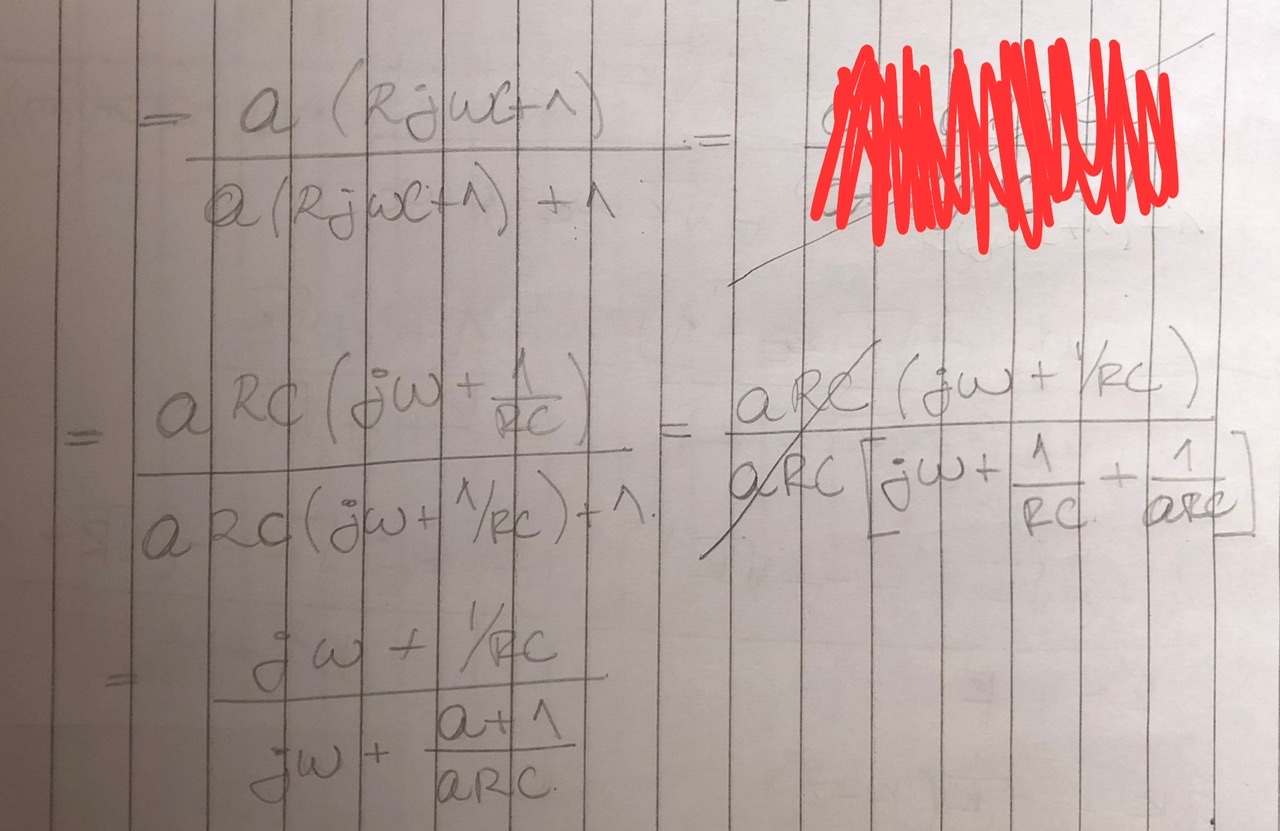 = a (RjωC+1) / a(Rjωc+1) + 1 =
= a RC (jω + 1/RC) / a RC (jω + 1/RC) + 1. = aRC (jω + 1/RC) / aRC [jω + 1/RC + 1/aRC]
= jω + 1/RC / jω + a+1/aRC